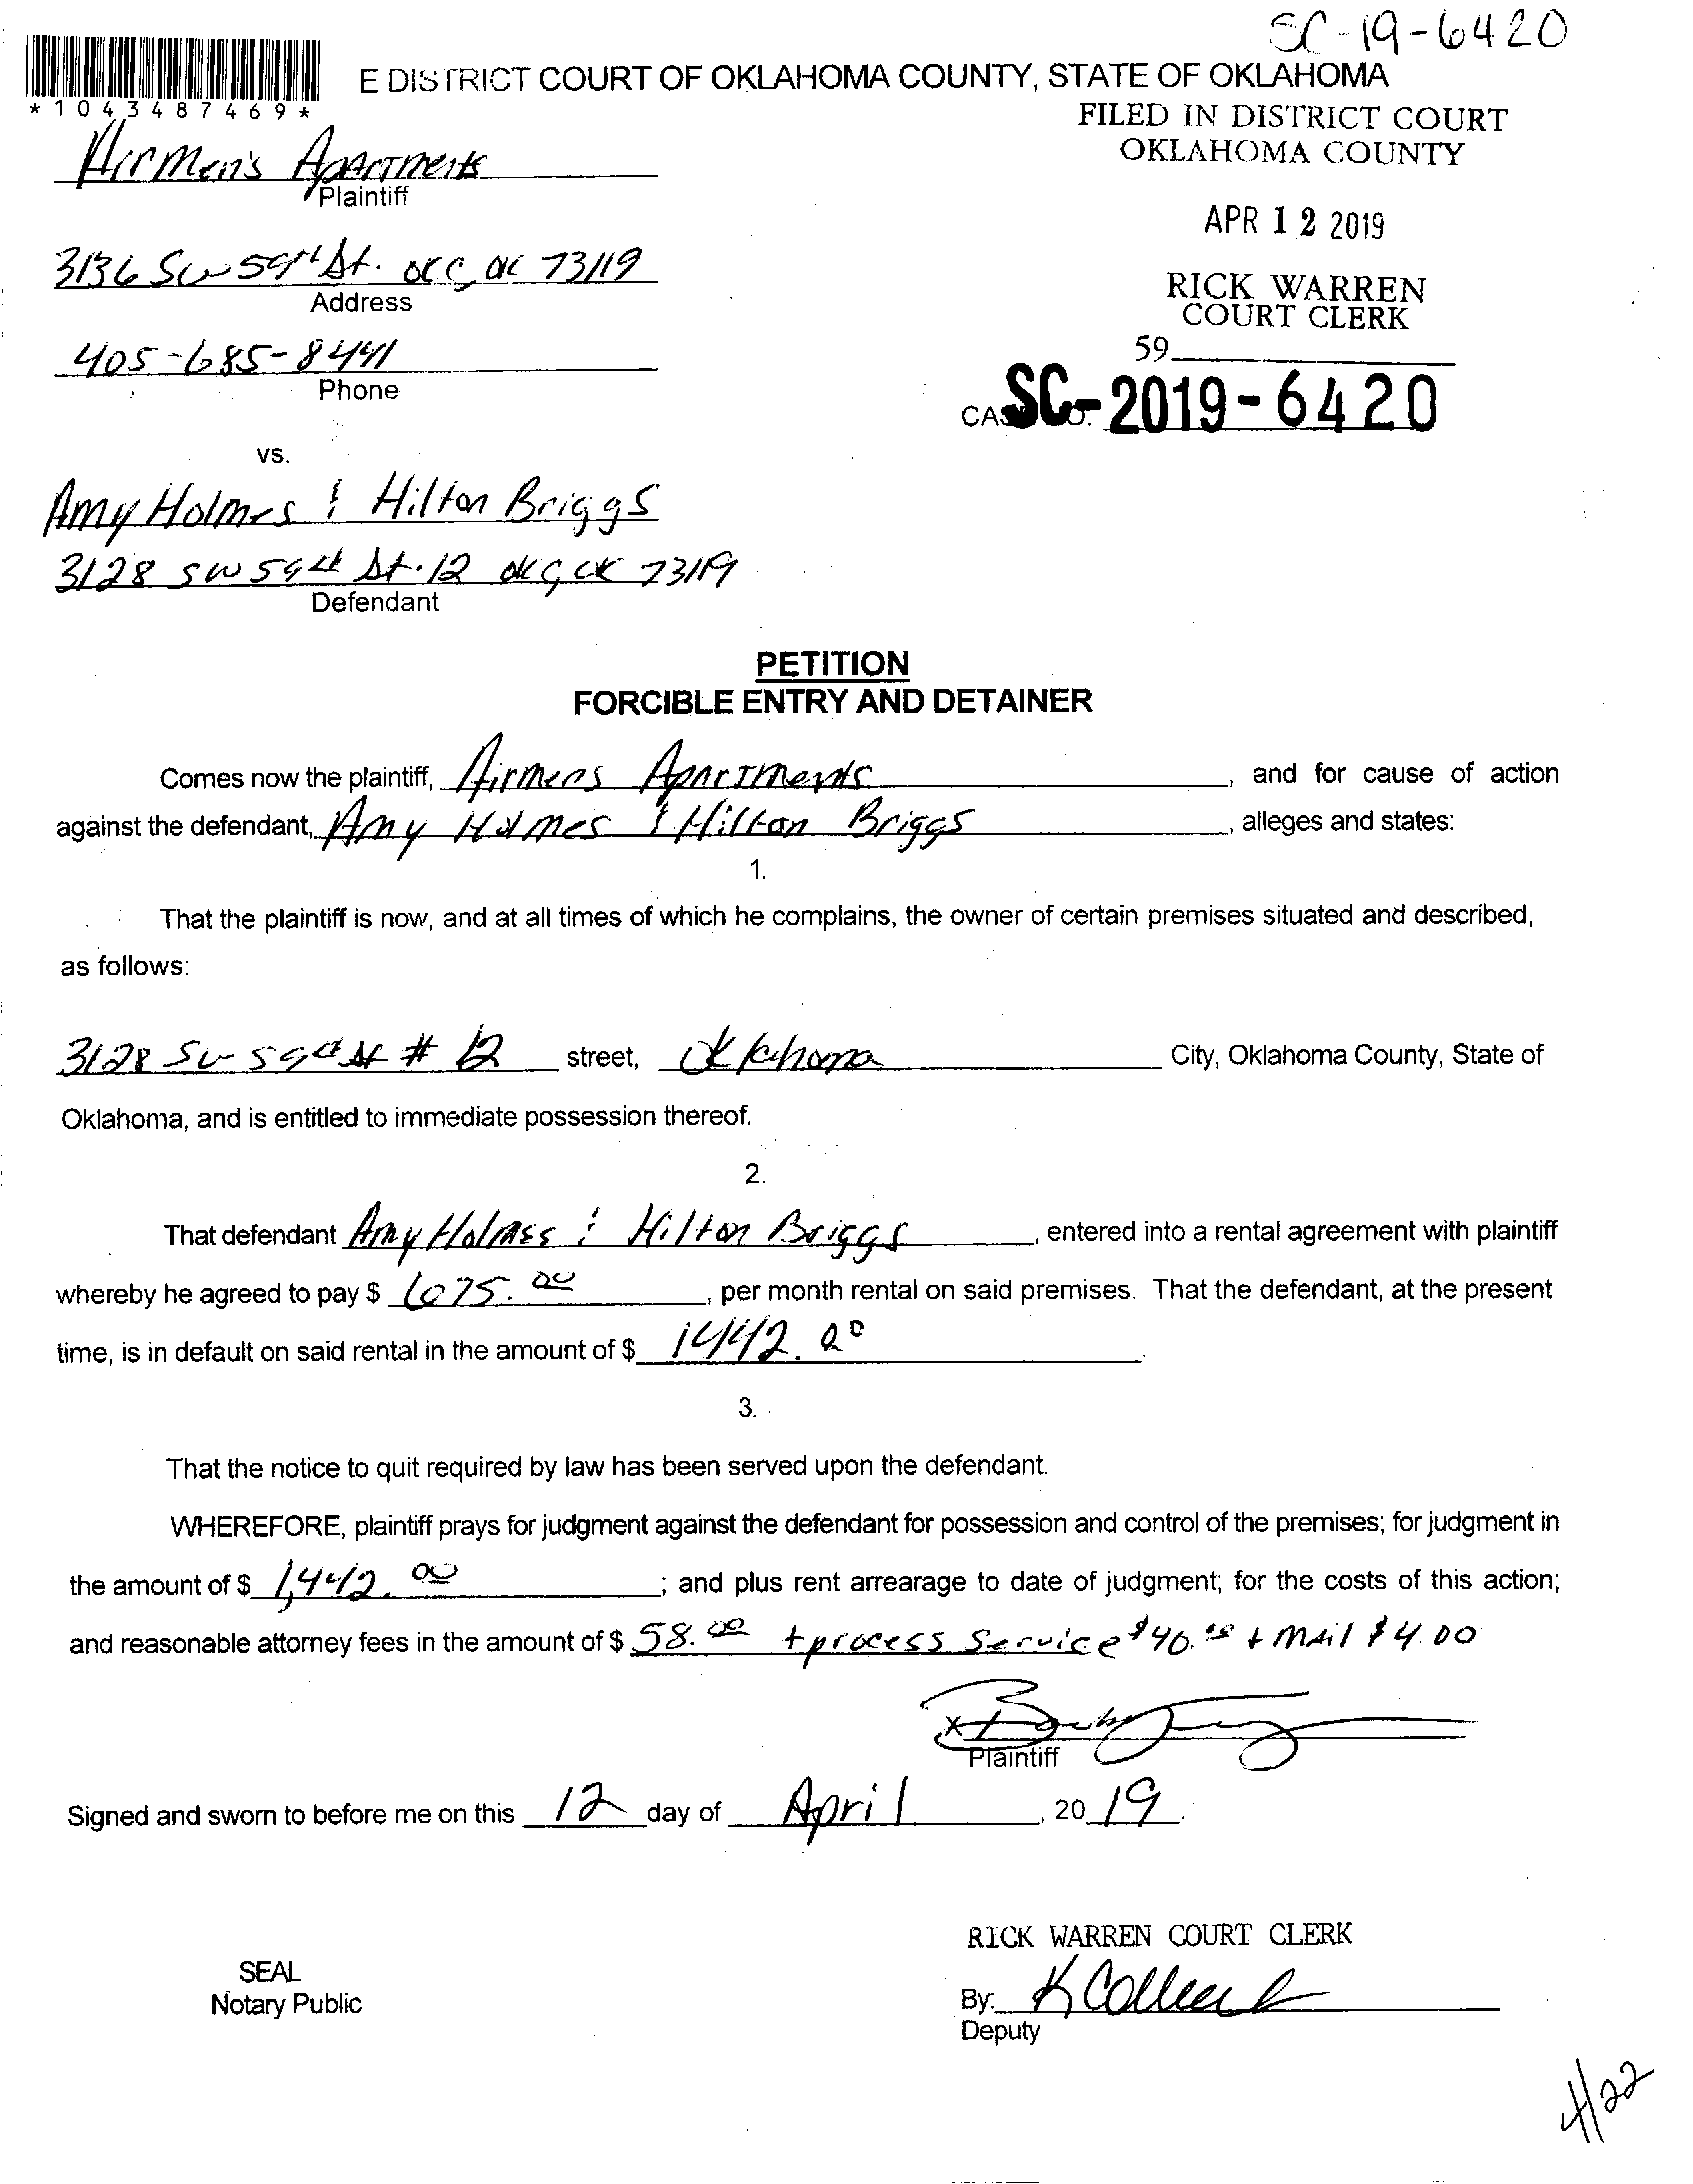 SC-19-6420
E DISTRICT COURT OF OKLAHOMA COUNTY, STATE OF OKLAHOMA
*1043487469*
FILED IN DISTRICT COURT
OKLAHOMA COUNTY
Airmen's Apartments
Plaintiff
APR 12 2019
3136 SW 59th St. OKC, OK 73119
Address
RICK WARREN
COURT CLERK
405-685-8441
Phone
59
SC-2019-6420
vs.
Amy Holmes & Hilton Briggs
3128 SW 59th St. 12 OKC, OK 73119
Defendant
PETITION
FORCIBLE ENTRY AND DETAINER
Comes now the plaintiff, Airmens Apartments, and for cause of action
against the defendant, Amy Holmes & Hilton Briggs, alleges and states:
1.
That the plaintiff is now, and at all times of which he complains, the owner of certain premises situated and described,
as follows:
3128 SW 59th St # 12 street, Oklahoma City, Oklahoma County, State of
Oklahoma, and is entitled to immediate possession thereof.
2.
That defendant Amy Holmes & Hilton Briggs, entered into a rental agreement with plaintiff
whereby he agreed to pay $ 675.00, per month rental on said premises. That the defendant, at the present
time, is in default on said rental in the amount of $ 1442.00.
3.
That the notice to quit required by law has been served upon the defendant.
WHEREFORE, plaintiff prays for judgment against the defendant for possession and control of the premises; for judgment in
the amount of $ 1,442.00; and plus rent arrearage to date of judgment; for the costs of this action;
and reasonable attorney fees in the amount of $ 58.00 + process Service $40.00 + Mail $4.00
X
Plaintiff
Signed and sworn to before me on this 12 day of April, 2019.
RICK WARREN COURT CLERK
SEAL
Notary Public
By:
Deputy
4/22